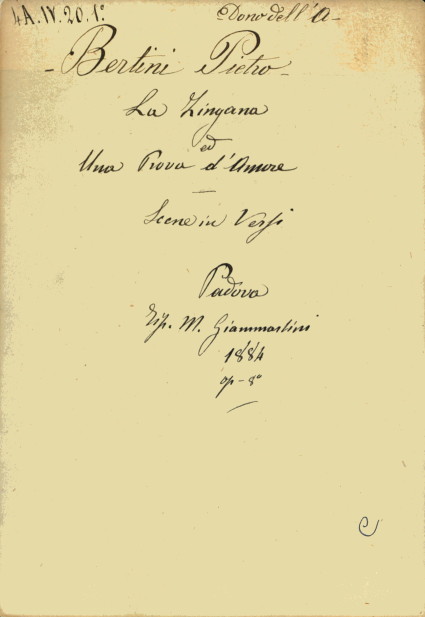 4A.IV.20.1°
Dono dell'A-
- Bertini Pietro -
La Zingana
ed
Una Prova d'Amore
Scene in Versi
Padova
Tip. M. Giammartini
1884
op-8°